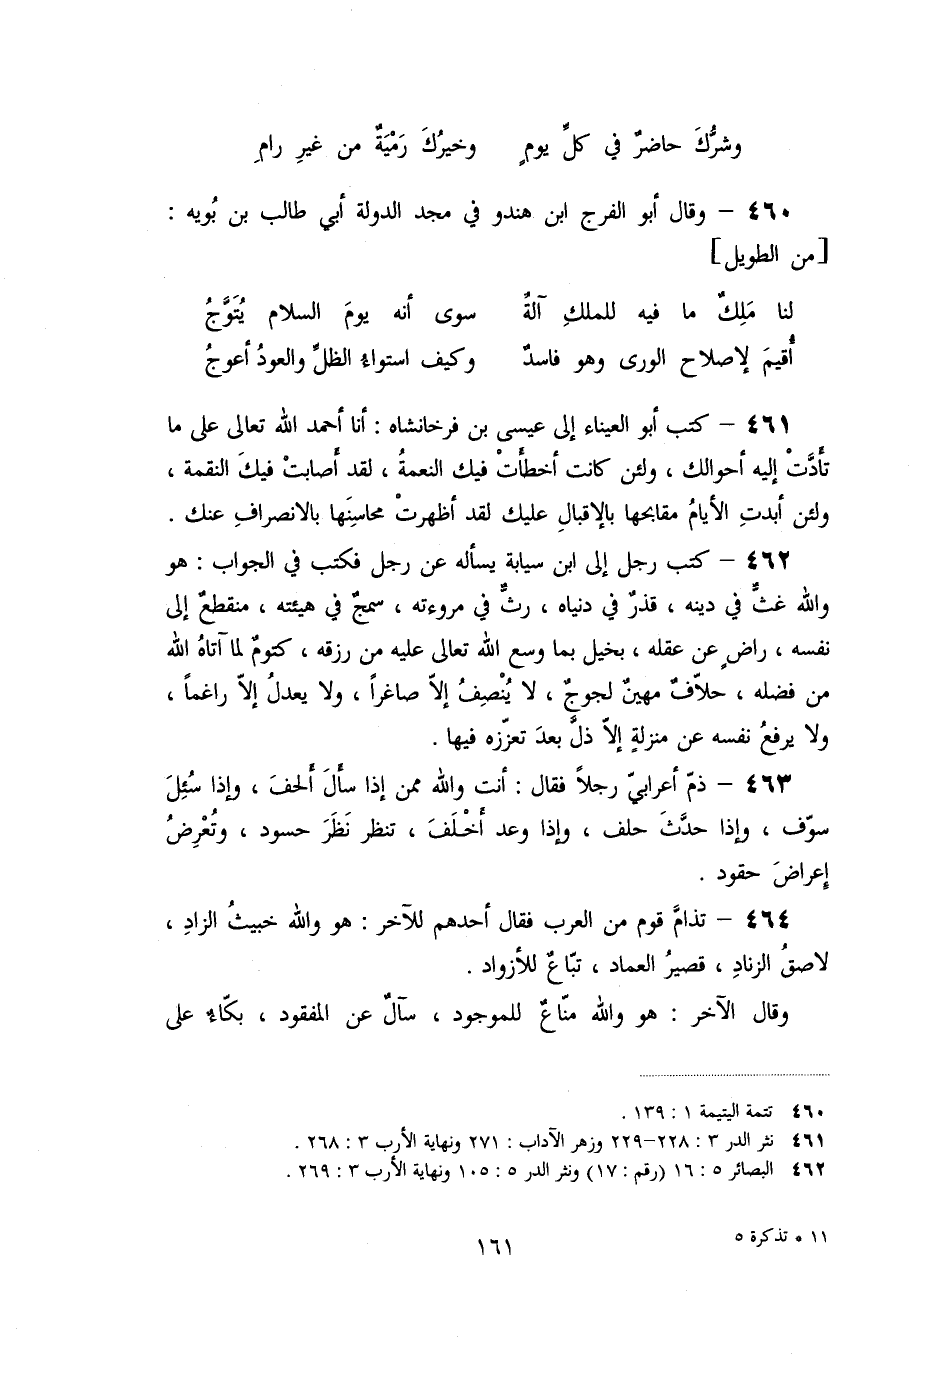 وشرُّكَ حاضرٌ في كلِّ يومٍ وخيرُكَ رَمْيَةٌ من غيرِ رامِ
٤٦٠ – وقال أبو الفرج ابن هندو في مجد الدولة أبي طالب بن بُويه :
[من الطويل]
لنا مَلِكٌ ما فيه للملكِ آلةٌ سوى أنه يومَ السلام يُتَوَّجُ
أُقيمَ لإصلاح الورى وهو فاسدٌ وكيف استواءُ الظلِّ والعودُ أعوجُ
٤٦١ – كتب أبو العيناء إلى عيسى بن فرخانشاه : أنا أحمد الله تعالى على ما
تأَدَّتْ إليه أحوالك ، ولئن كانت أخطأَتْ فيك النعمةُ ، لقد أصابتْ فيكَ النقمة ،
ولئن أبدتِ الأيامُ مقابحها بالإقبالِ عليك لقد أظهرتْ محاسنَها بالانصرافِ عنك .
٤٦٢ – كتب رجل إلى ابن سيابة يسأله عن رجل فكتب في الجواب : هو
والله غثٌّ في دينه ، قذرٌ في دنياه ، رثٌّ في مروءته ، سمجٌ في هيئته ، منقطعٌ إلى
نفسه ، راضٍ عن عقله ، بخيل بما وسع الله تعالى عليه من رزقه ، كتومٌ لما آتاهُ الله
من فضله ، حلاّفٌ مهينٌ لجوجٌ ، لا يُنْصِفُ إلاّ صاغراً ، ولا يعدلُ إلاّ راغماً ،
ولا يرفعُ نفسه عن منزلةٍ إلاّ ذلَّ بعدَ تعزّزه فيها .
٤٦٣ – ذمّ أعرابيّ رجلاً فقال : أنت والله ممن إذا سأَلَ أَلحفَ ، وإذا سُئِلَ
سوّف ، وإذا حدَّثَ حلف ، وإذا وعد أَخْلَفَ ، تنظر نَظَرَ حسود ، وتُعْرِضُ
إعراضَ حقود .
٤٦٤ – تذامَّ قوم من العرب فقال أحدهم للآخر : هو والله خبيثُ الزادِ ،
لاصقُ الزنادِ ، قصيرُ العماد ، تبّاعٌ للأزواد .
وقال الآخر : هو والله منّاعٌ للموجود ، سآلٌ عن المفقود ، بكّاءٌ على
٤٦٠ تتمة اليتيمة ١ : ١٣٩ .
٤٦١ نثر الدر ٣ : ٢٢٨–٢٢٩ وزهر الآداب : ٢٧١ ونهاية الأرب ٣ : ٢٦٨ .
٤٦٢ البصائر ٥ : ١٦ (رقم : ١٧) ونثر الدر ٥ : ١٠٥ ونهاية الأرب ٣ : ٢٦٩ .
١١ * تذكرة ٥
١٦١